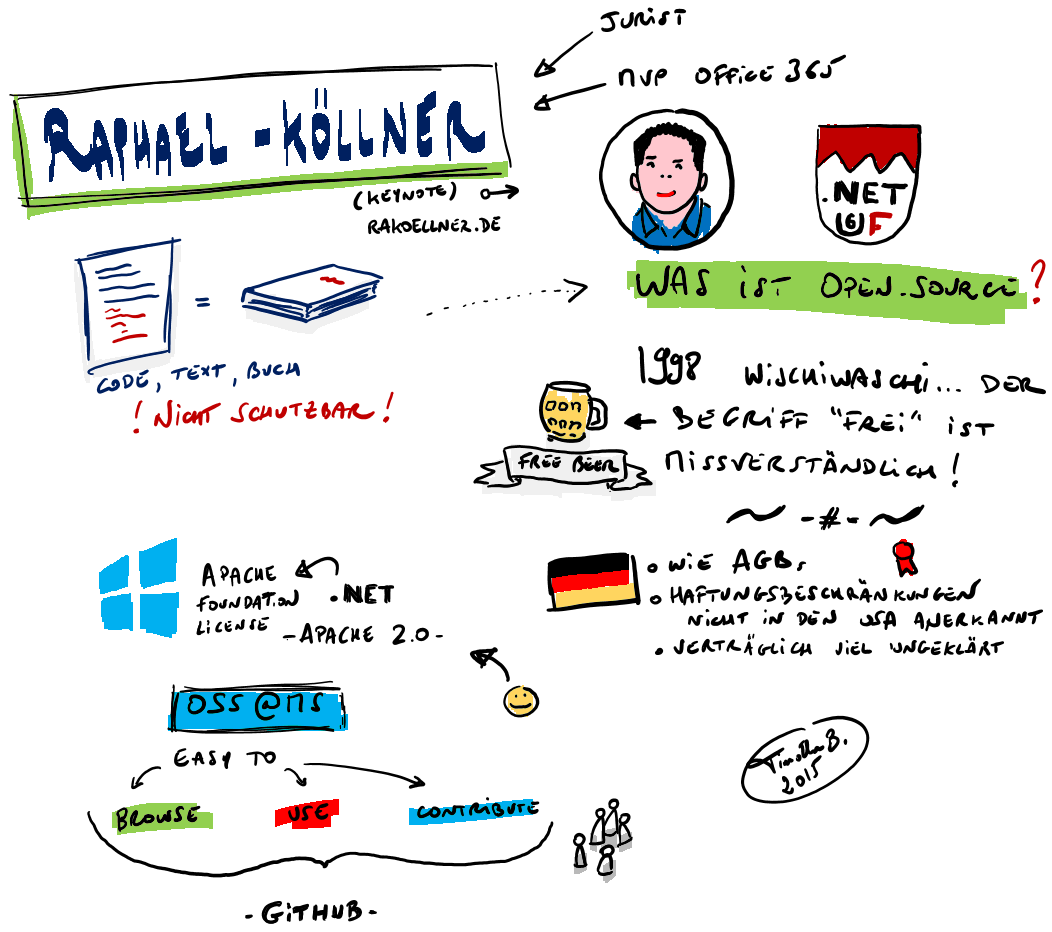 JURIST
MVP OFFICE 365
RAPHAEL - KÖLLNER
(KEYNOTE)
RAKOELLNER.DE
.NET
UG F
WAS IST OPEN.SOURCE?
=
CODE, TEXT, BUCH
! NICHT SCHUTZBAR!
1998 WISCHIWASCHI... DER
BEGRIFF "FREI" IST
MISSVERSTÄNDLICH!
FREE BEER
~ -#- ~
• WIE AGB,
• HAFTUNGSBESCHRÄNKUNGEN
NICHT IN DEN USA ANERKANNT
• VERTRÄGLICH VIEL UNGEKLÄRT
APACHE
FOUNDATION
LICENSE
.NET
-APACHE 2.0-
OSS @MS
EASY TO
BROWSE USE CONTRIBUTE
- GITHUB -
Timothy B.
2015